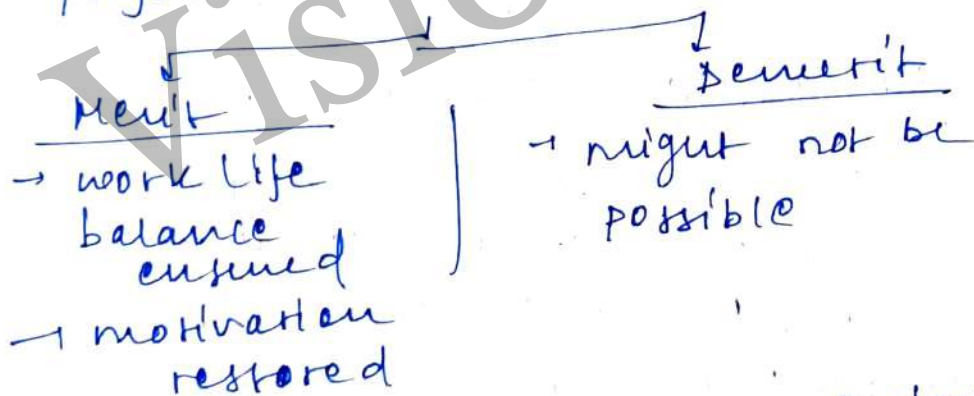 Merit
→ work life
balance
ensured
→ motivation
restored
Demerit
→ might not be
possible
Visio